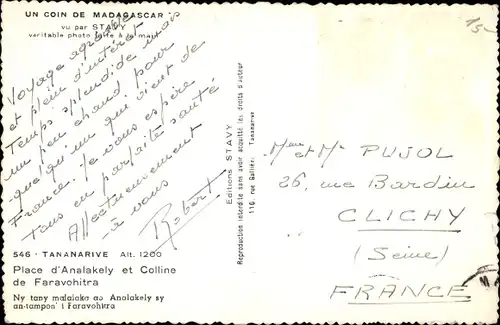 UN COIN DE MADAGASCAR
vu par STAVY
véritable photo faite à la main
Voyage agréable
et plein d'intérêt
Temps splendide mais
un peu chaud pour
quelqu'un qui vient de
France. Je vous espère
tous en parfaite santé
Affectueusement
à vous
Robert
546 - TANANARIVE Alt. 1200
Place d'Analakely et Colline
de Faravohitra
Ny tany malalaka ao Analakely sy
an-tampon' i Faravohitra
Editions STAVY
110, rue Galliéni Tananarive
Reproduction interdite sans avoir acquitté les droits d'auteur
15
Mme et Mr PUJOL
26, rue Bardin
CLICHY
(Seine)
FRANCE